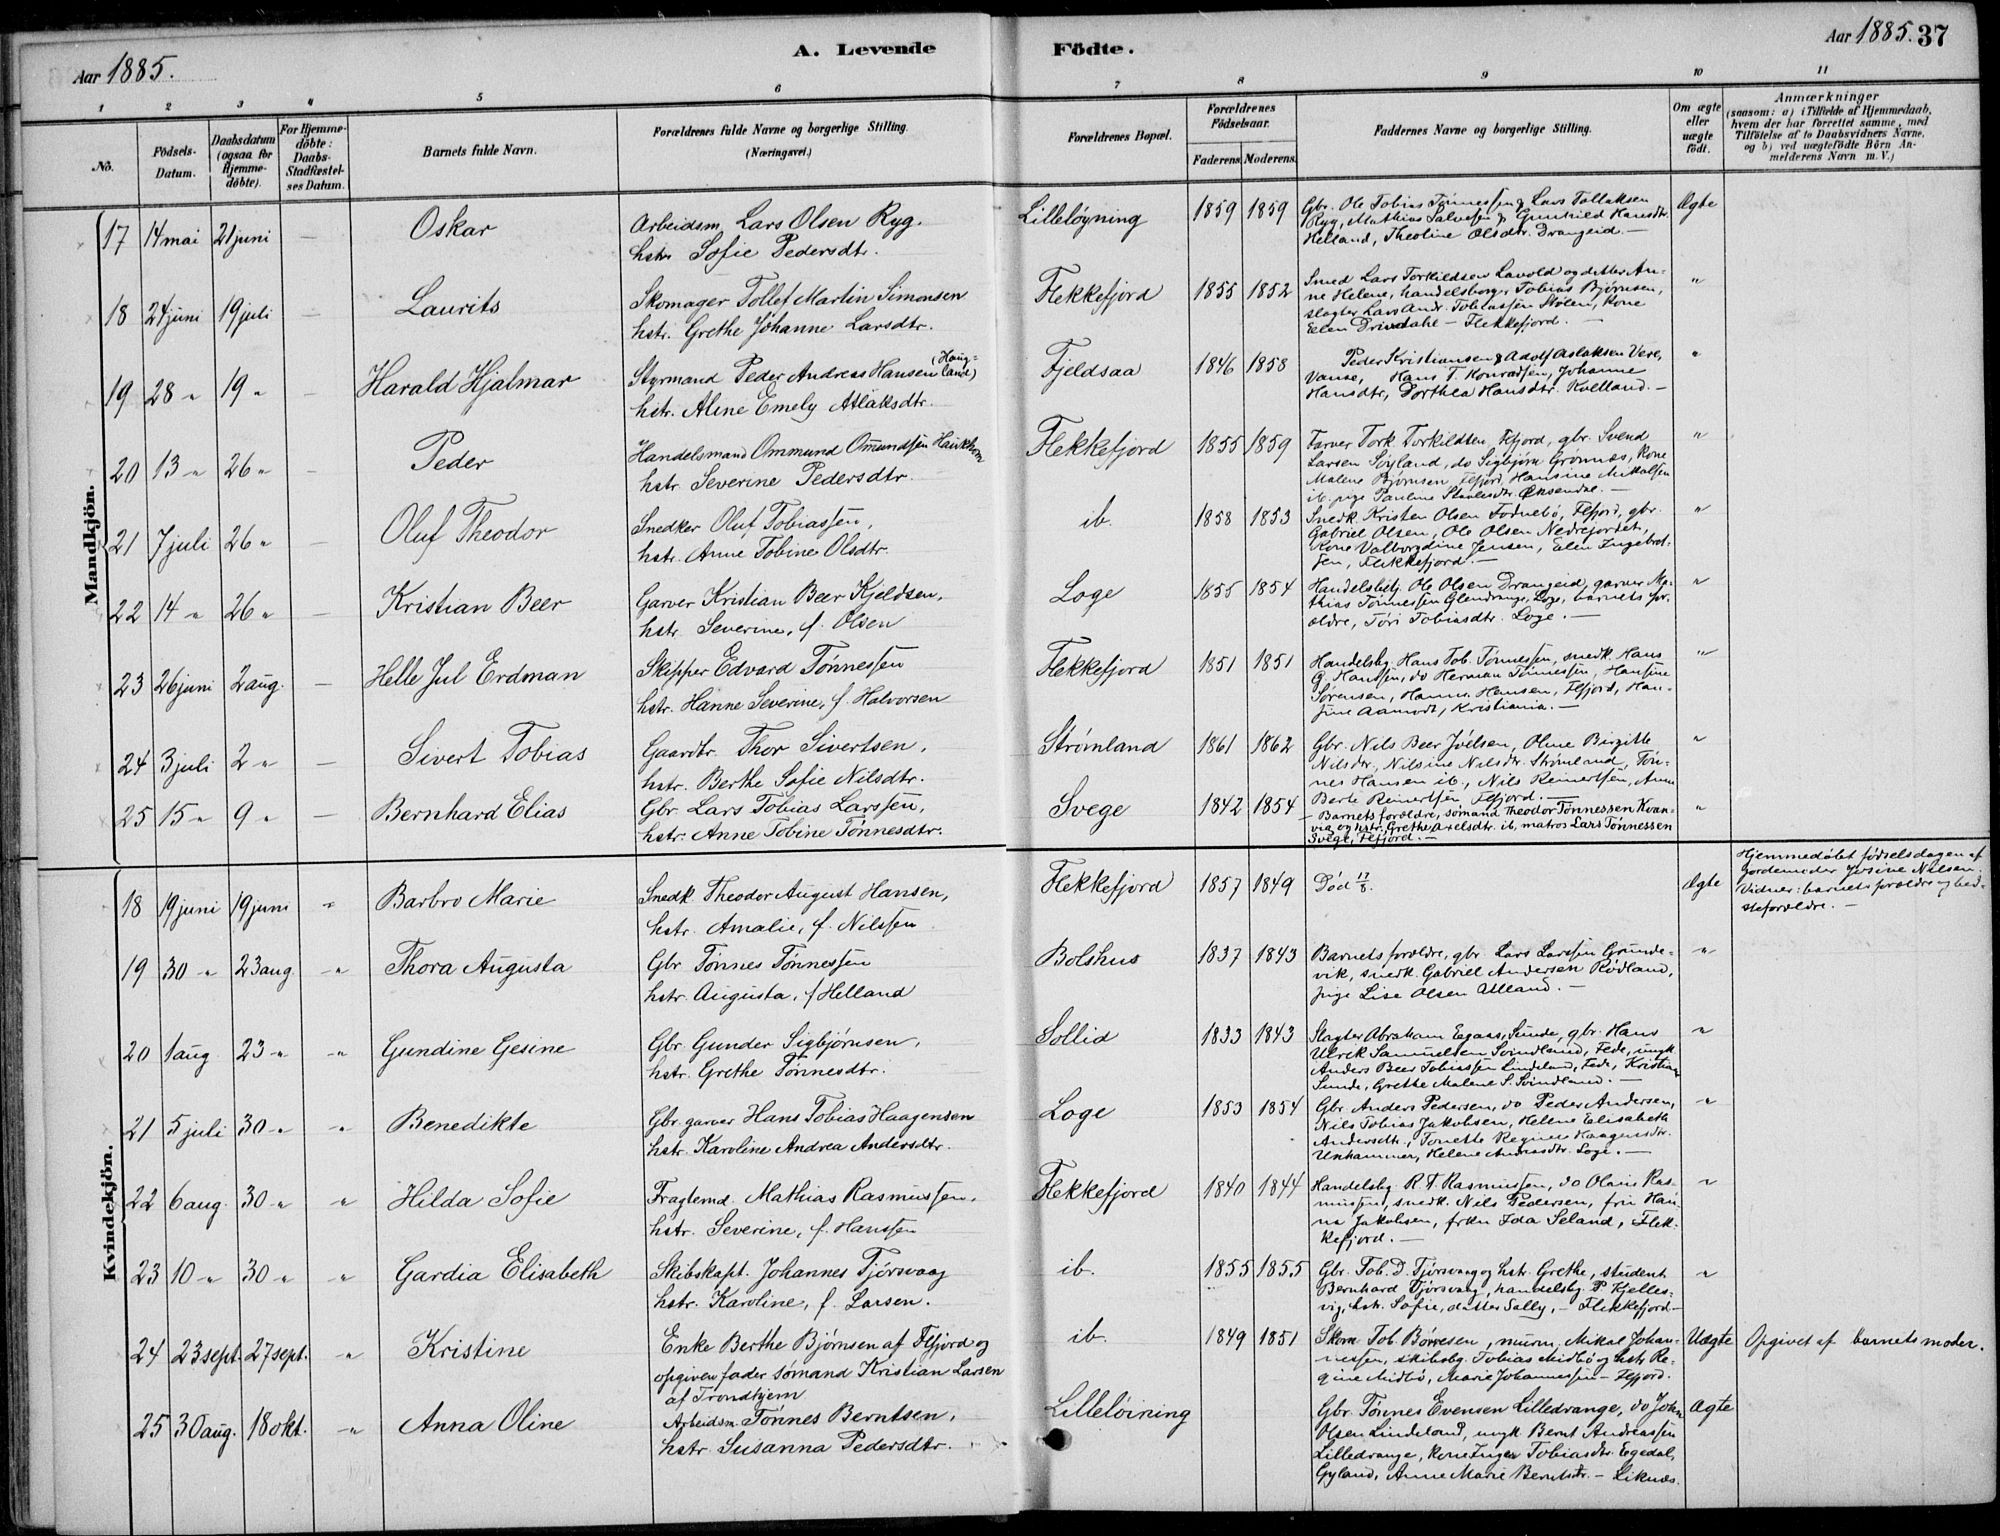 Aar 1885.
A. Levende Födte.
Aar 1885. 37
1 2 3 4 5 6 7 8 9 10 11
No.
Födsels-Datum.
Daabsdatum (ogsaa for Hjemmedöbte).
For Hjemmedöbte: Daabs-Stadfæstelses Datum.
Barnets fulde Navn.
Forældrenes fulde Navne og borgerlige Stilling. (Næringsvei.)
Forældrenes Bopæl.
Forældrenes Födselsaar.
Faderens. Moderens.
Faddernes Navne og borgerlige Stilling.
Om ægte eller uægte født.
Anmærkninger
(saasom: a) i Tilfælde af Hjemmedaab,
hvem der har forrettet samme, med
Tilföielse af to Daabsvidners Navne,
og b) ved uægtefödte Börn Anmelderens Navn m. V.)
Mandkjön.
17 14 mai 21 juni — Oskar
Arbeidsm. Lars Olsen Ryg.
hstr. Sofie Pedersdtr.
Lilleløyning 1859 1859
Gbr. Ole Tobias Tønnessen & Lars Tollaksen
Ryg, Mathias Salvesen & Gunhild Hansdtr.
Helland, Theoline Olsdtr. Drangeid. —
Ægte
18 24 juni 19 juli — Laurits
Skomager Tollef Martin Simonsen
hstr. Grethe Johanne Larsdtr.
Flekkefjord 1855 1852
Smed Lars Torkildsen Lavold og datter An-
ne Helene, handelsborger Tobias Bjørnsen,
slagter Lars Andr. Tobiassen Stølen, Kone
Elen Drivdahl — Flekkefjord. —
"
19 28 " 19 " — Harald Hjalmar
Styrmand Peder Andreas Hansen (Haug-
land)
hstr. Aline Emely Atlaksdtr.
Fjeldsaa 1846 1858
Peder Kristiansen & Adolf Aslaksen Vere,
Vanse, Hans T. Konradsen, Johanne
Hansdtr, Dorthea Hansdtr. Kvelland. —
"
20 13 " 26 " — Peder
Handelsmand Ommund Omundsen Haukom
hstr. Severine Pedersdtr.
Flekkefjord 1855 1859
Farver Tork. Torkildsen, Flfjord, gbr. Svend
Larsen Søyland, do Sigbjørn Grønnæs, Kone
Malene Bjørnsen Flfjord, Hansine Mikalsen
ib. pige Pauline Stavlesdtr. Øksendal. —
"
21 7 juli 26 " — Oluf Theodor
Snedker Oluf Tobiassen,
hstr. Anne Tobine Olsdtr.
ib. 1858 1853
Snedk. Kristen Olsen Fodnebø, Flfjord, gbr.
Gabriel Olsen, Ole Olsen Nedrejordet,
Kone Valborgdine Jensen, Elen Ingebret-
sen, Flekkefjord. —
"
22 14 " 26 " — Kristian Beer
Garver Kristian Beer Kjeldsen,
hstr. Severine, f. Olsen
Loge 1855 1854
Handelsbetj. Ole Olsen Drangeid, garver Ma-
thias Tønnessen Glendrange, Loge, barnets for-
ældre, Tøri Tobiasdtr. Loge. —
"
23 26 juni 2 aug. — Helle Jul Erdman
Skipper Edvard Tønnessen
hstr. Hanne Severine, f. Halvorsen
Flekkefjord 1851 1851
Handelsbg. Hans Tob. Tønnessen, snedk. Hans
G. Hanssen, do Herman Tønnessen, Hansine
Sørensen, Hanna Hansen, Flfjord, Han-
sine Aamodt, Kristiania. —
"
24 3 juli 2 " — Sivert Tobias
Gaardbr. Thor Sivertsen,
hstr. Berthe Sofie Nilsdtr.
Strømland 1861 1862
Gbr. Nils Beer Joelsen, Oline Birgitte
Nilsdtr, Nilsine Nilsdtr. Strømland, Tøn-
nes Hansen ib., Nils Reinertsen, Anna
Berte Reinertsen, Flfjord. —
"
25 15 " 9 " — Bernhard Elias
Gbr. Lars Tobias Larssen,
hstr. Anne Tobine Tønnesdtr.
Svege 1842 1854
— Barnets forældre, sømand Theodor Tønnessen Kvan-
vig og hstr. Grethe Axelsdtr. ib, matros Lars Tønnessen
Svege, Flfjord. —
"
Kvindekjön.
18 19 juni 19 juni " Barbro Marie
Snedk. Theodor August Hansen,
hstr. Amalie, f. Nilssen
Flekkefjord 1857 1849
Død 17/8.
Ægte
Hjemmedøbt fødselsdagen af
Jordemoder Josine Nilsen.
Vidner: barnets forældre og bed-
steforældre. —
19 30 " 23 aug. " Thora Augusta
Gbr. Tønnes Tønnessen
hstr. Augusta, f Helland
Bolshus 1837 1843
Barnets forældre, gbr. Lars Larssen Grunde-
vik, snedk. Gabriel Andersen Rødland,
pige Lise Olsen Ulland. —
"
20 1 aug. 23 " " Gundine Gesine
Gbr. Gunder Sigbjørnsen,
hstr. Grethe Tønnesdtr.
Sollid 1833 1843
Slagter Abraham Egaas, Sunde, gbr. Hans
Ulrik Samuelsen Svindland, Fede, ungk.
Anders Beer Tobiassen Lindeland, Fede, Kristian
Sunde, Grethe Malene S. Svindland. —
"
21 5 juli 30 " " Benedikte
Gbr. garver Hans Tobias Haagensen
hstr. Karoline Andrea Andersdtr.
Loge 1853 1854
Gbr. Anders Pedersen, do Peder Andersen,
Nils Tobias Jakobsen, Helene Elisabeth
Andersdtr., Tonette Regine Haagensdtr.
Unhammer, Helene Andreasdtr. Loge. —
"
22 6 aug. 30 " " Hilda Sofie
Fragtemd. Mathias Rasmussen,
hstr. Severine, f. Hanssen
Flekkefjord 1840 1844
Handelsbg. R. T. Rasmussen, do Olaus Ras-
mussen, snedk. Nils Pedersen, fru Han-
na Jakobsen, frkn Ida Seland, Flek-
kefjord. —
"
23 10 " 30 " " Gardia Elisabeth
Skibskapt. Johannes Tjørsvaag
hstr. Karoline, f. Larsen.
ib. 1855 1855
Gbr. Tob. D. Tjørsvaag og hstr. Grethe, student
Bernhard Tjørsvaag, handelsbg. P. Kjelles-
vig, hstr. Sofie, datter Sally, — Flekkefjord —
"
24 23 sept. 27 sept. " Kristine
Enke Berthe Bjørnsen af Flfjord og
opgiven fader sømand Kristian Larsen
af Trondhjem
ib. 1849 1851
Skom. Tob. Børresen, murm. Mikal Johan-
nessen, skibsbg. Tobias Midbø og hstr. Re-
gine Midbø, Marie Johannessen — Flfjord.
Uægte
Opgivet af barnets moder.
25 30 aug. 18 okt. " Anna Oline
Arbeidsm. Tønnes Berntsen,
hstr. Susanna Pedersdtr.
Lilleløining
Gbr. Tønnes Evensen Lilledrange, do John
Olsen Lindeland, ungk. Bernt Andreassen
Lilledrange, Kone Inger Tobiasdtr. Egedal,
Gyland, Anne Marie Berntsdtr. — Liknæs.
Ægte